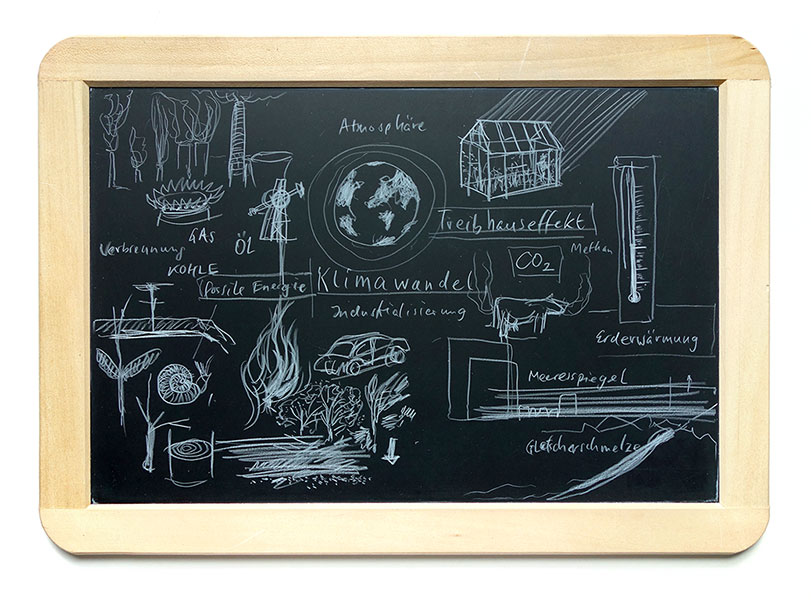 Atmosphäre
Treibhauseffekt
GAS
Verbrennung
ÖL
KOHLE
Methan
CO₂
Fossile Energie
Klimawandel
Industrialisierung
Erderwärmung
Meeresspiegel
Gletscherschmelze